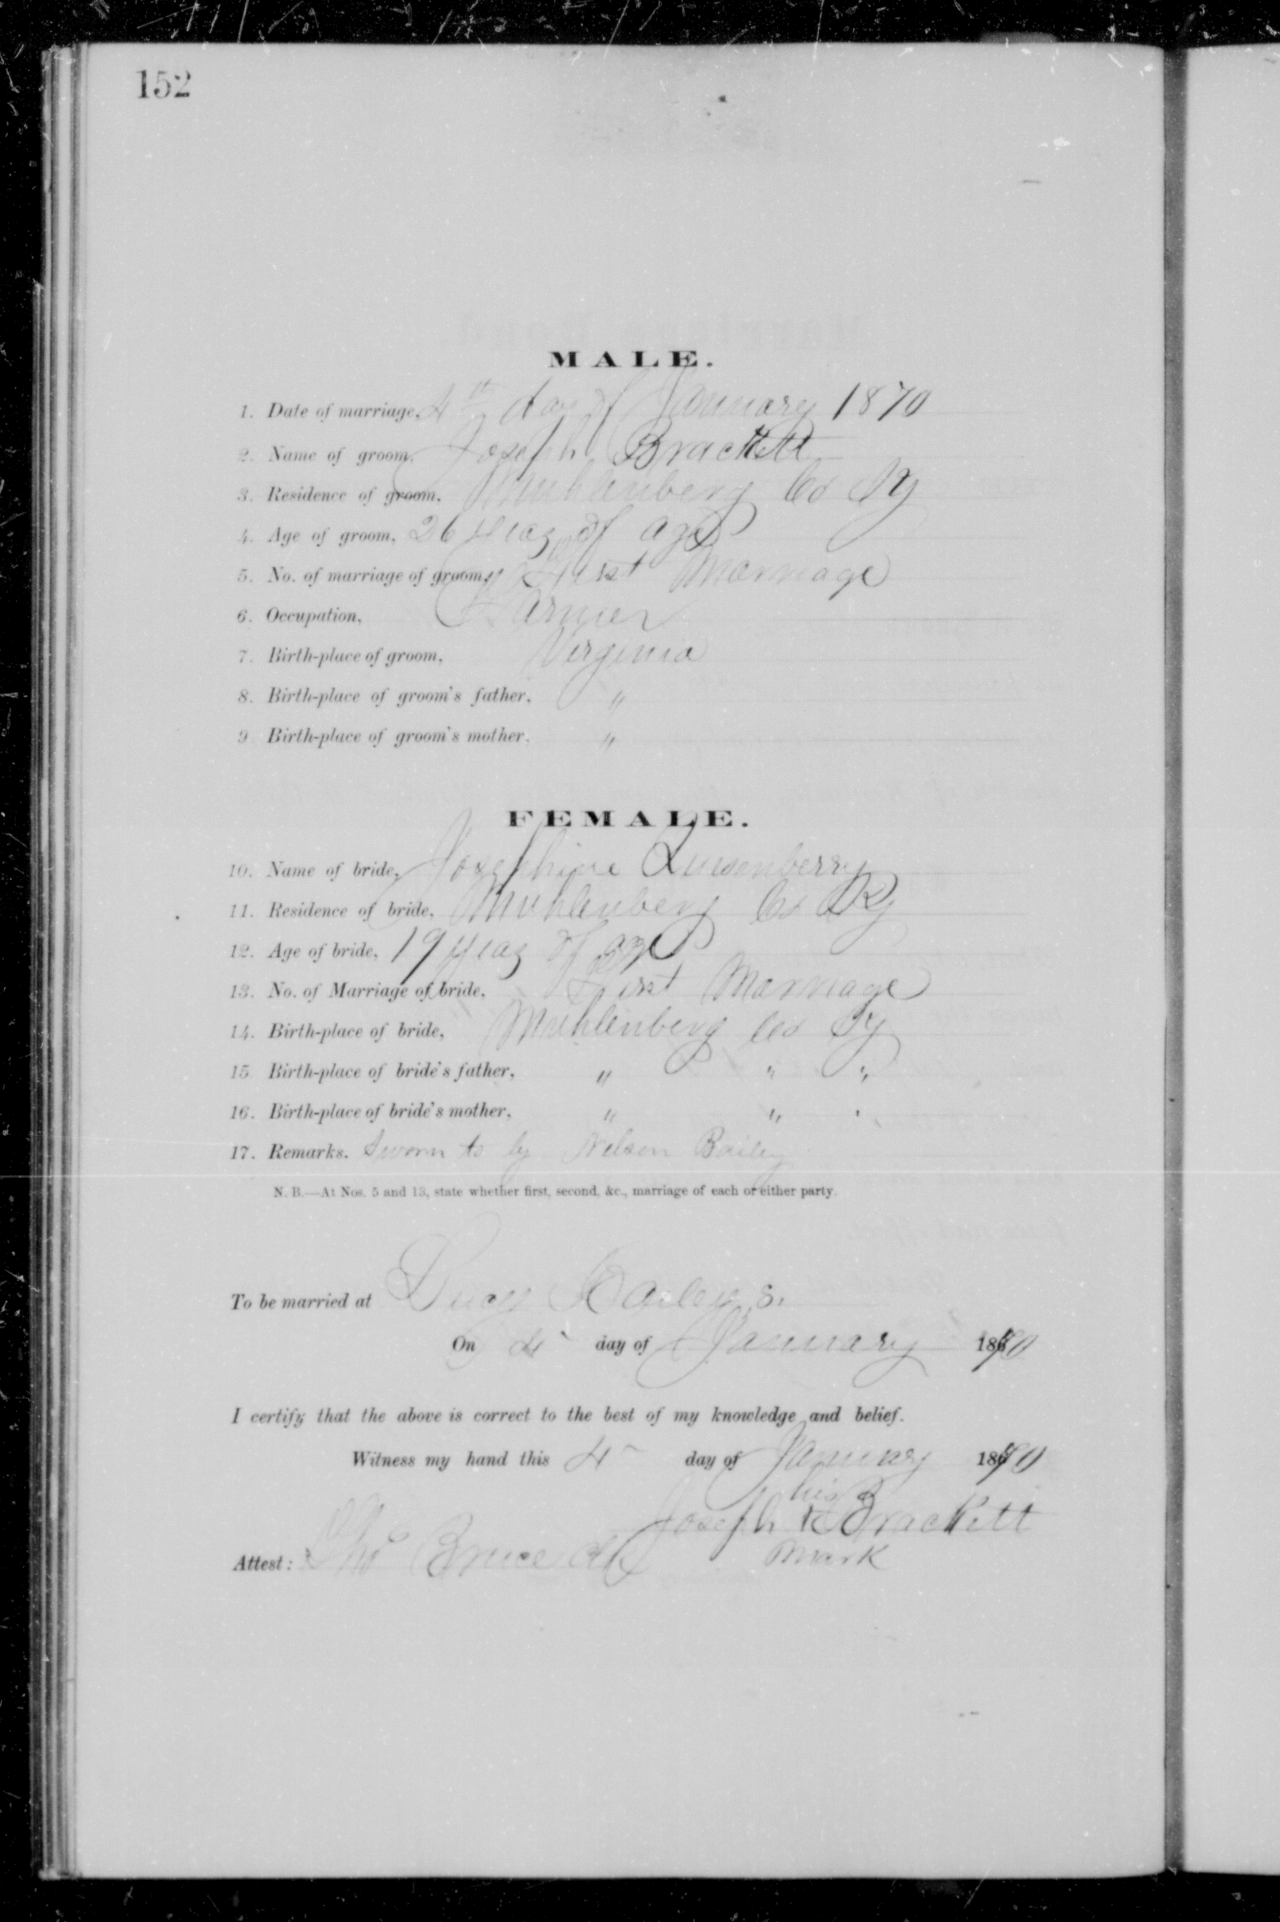 152
MALE.
1. Date of marriage, 4th day of January 1870
2. Name of groom, Joseph Brackett
3. Residence of groom, Muhlenberg Co Ky
4. Age of groom, 26 years of age
5. No. of marriage of groom, First Marriage
6. Occupation, Farmer
7. Birth-place of groom, Virginia
8. Birth-place of groom's father, "
9 Birth-place of groom's mother, "
FEMALE.
10. Name of bride, Josephine Quisenberry
11. Residence of bride, Muhlenberg Co Ky
12. Age of bride, 19 years of age
13. No. of Marriage of bride, First Marriage
14. Birth-place of bride, Muhlenberg Co Ky
15 Birth-place of bride's father, " " "
16. Birth-place of bride's mother, " " "
17. Remarks. Sworn to by Nelson Bailey
N. B.—At Nos. 5 and 13, state whether first, second, &c., marriage of each or either party.
To be married at Lucy Bailey's.
On 4 day of January 1870
I certify that the above is correct to the best of my knowledge and belief.
Witness my hand this 4 day of January 1870
his
Joseph X Brackett
mark
Attest: Bruce Clk